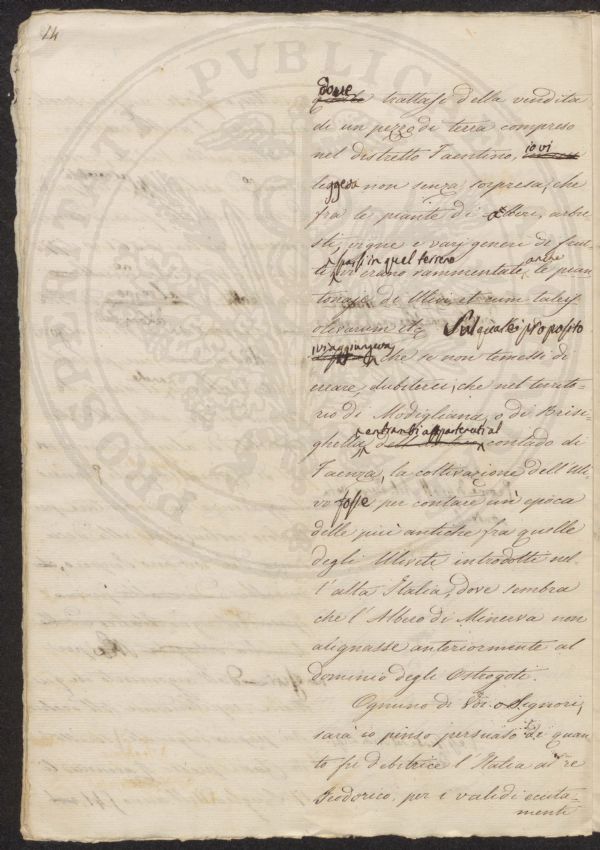 14
dove
trattasi della vendita
di un pezzo di terra compreso
nel distretto Faentino, io vi
leggeva non senza sorpresa, che
fra le piante di alberi, arbu
sti, vigne e varj generi di frut
ti posti in quel terreno
vi erano rammentate, anche le pian
tonaje di Ulivi, et cum taleis
olivarum etc Sul qual proposito
io vi aggiungeva
che se non temessi di
errare, dubiterei, che nel territo
rio di Modigliana, o di Brisi
ghella entrambi appartenenti al
contado di
Faenza, la coltivazione dell'Uli
vo fosse per contare un'epoca
delle più antiche fra quelle
degli Uliveti introdotti nel
l'alta Italia, dove sembra
che l'Albero di Minerva non
alignasse anteriormente al
dominio degli Ostrogoti.
Ognuno di Voi o Signori,
sarà io penso persuaso di quan
to fu debitrice l'Italia al re
Teodorico, per i validi ecita-
menti
PUBLIC